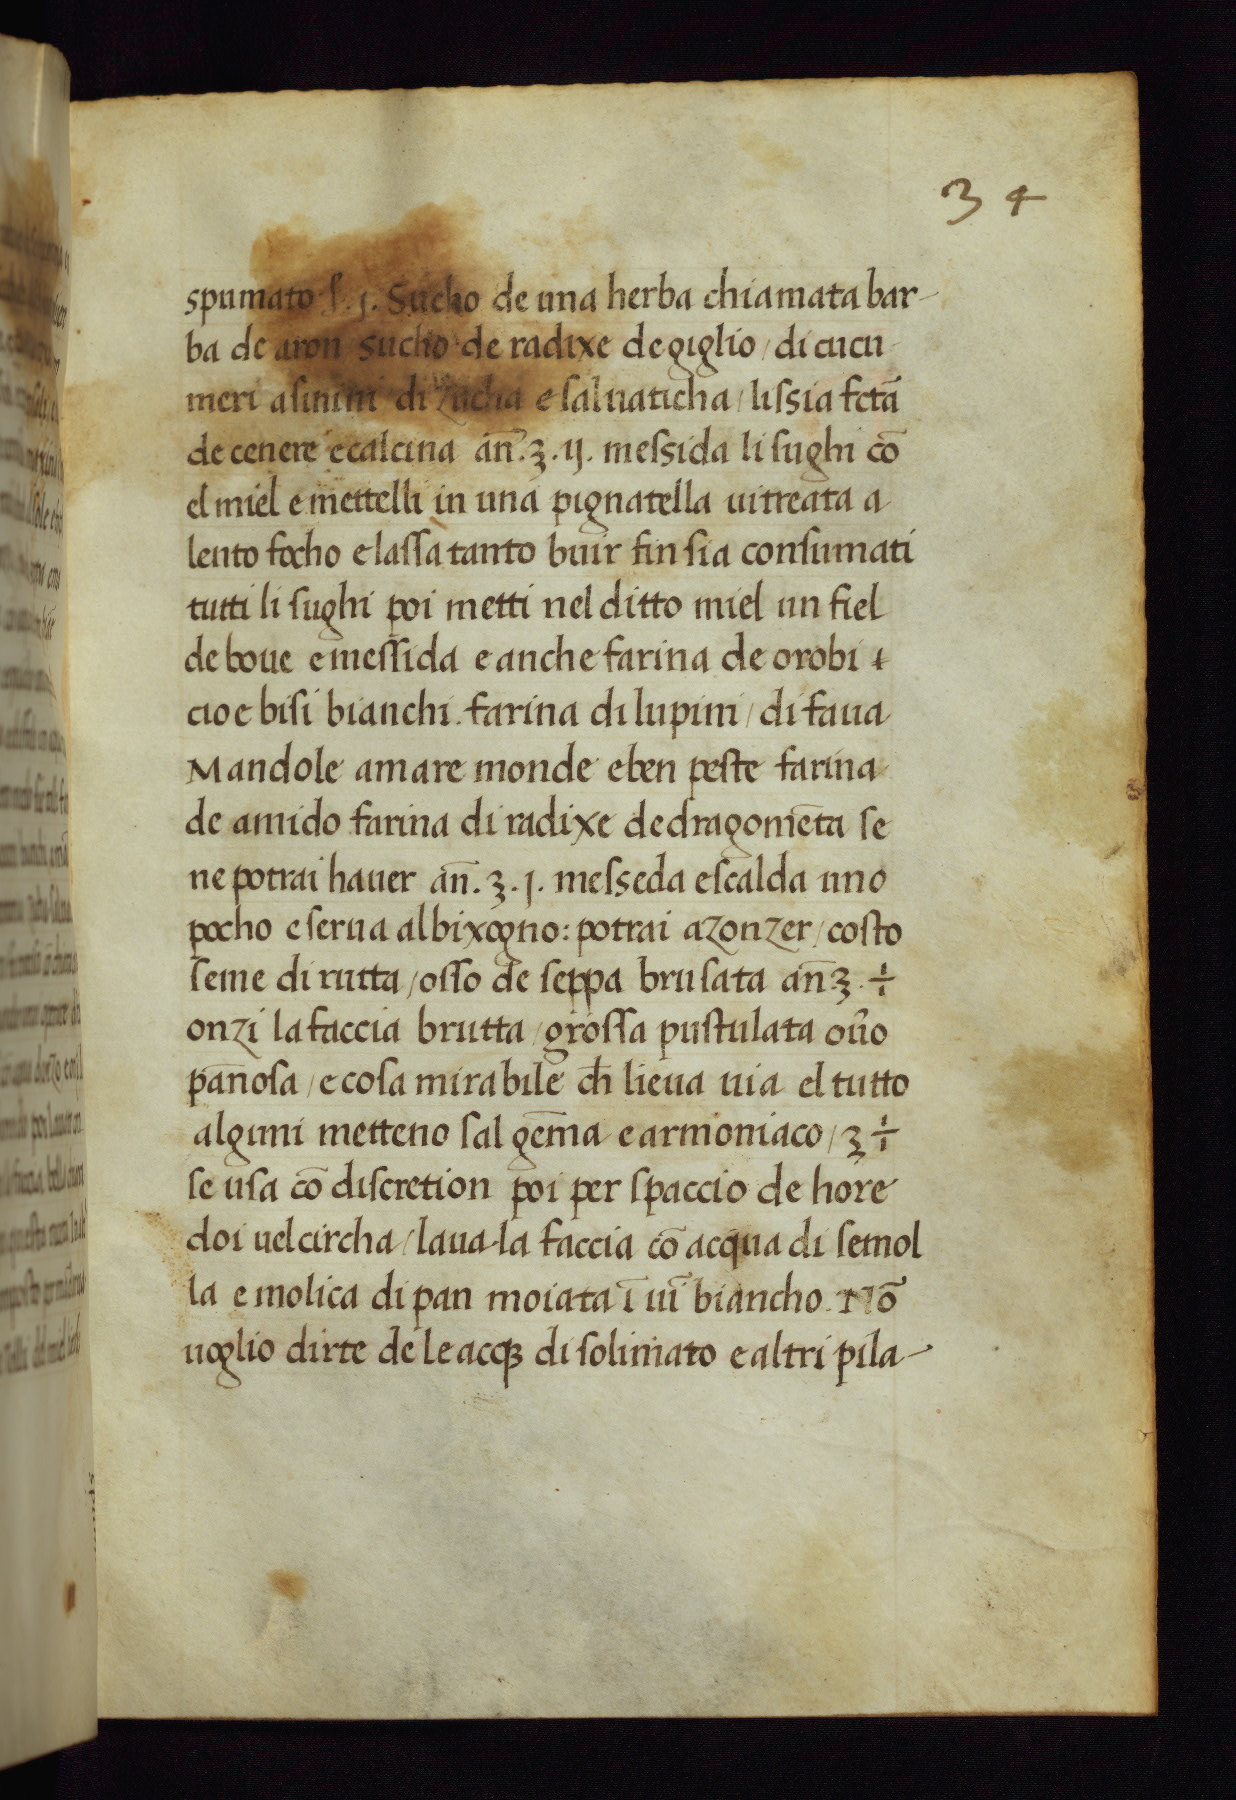 34
spumato ſ. j. Sucho de una herba chiamata bar-
ba de aron sucho de radixe de giglio / di cucu
meri asinini di zucha e saluaticha / lissia fctā
de cenere e calcina an̄. ʒ. ij. messida li sughi cō
el miel e mettelli in una pignatella uitreata a
lento focho e lassa tanto buir fin sia consumati
tutti li sughi poi metti nel ditto miel un fiel
de boue e messida e anche farina de orobi
cioe bisi bianchi. farina di lupini / di faua
Mandole amare monde e ben peste farina
de amido farina di radixe de dragomēta se
ne potrai hauer an̄. ʒ. j. messeda e scalda uno
pocho e serua al bixogno: potrai azonzer / costo
seme di rutta / osso de seppa brusata an̄ ʒ. ÷
onzi la faccia brutta / grossa pustulata oūo
pan̄osa / e cosa mirabile ch̄ lieua uia el tutto
alguni metteno sal gēma e armoniaco / ʒ ÷
se usa cō discretion poi per spaccio de hore
doi uel circha / laua la faccia cō acqua di semol
la e molica di pan moiata ī uī biancho. Nō
uoglio dirte de le acqꝫ di solimato e altri pila-